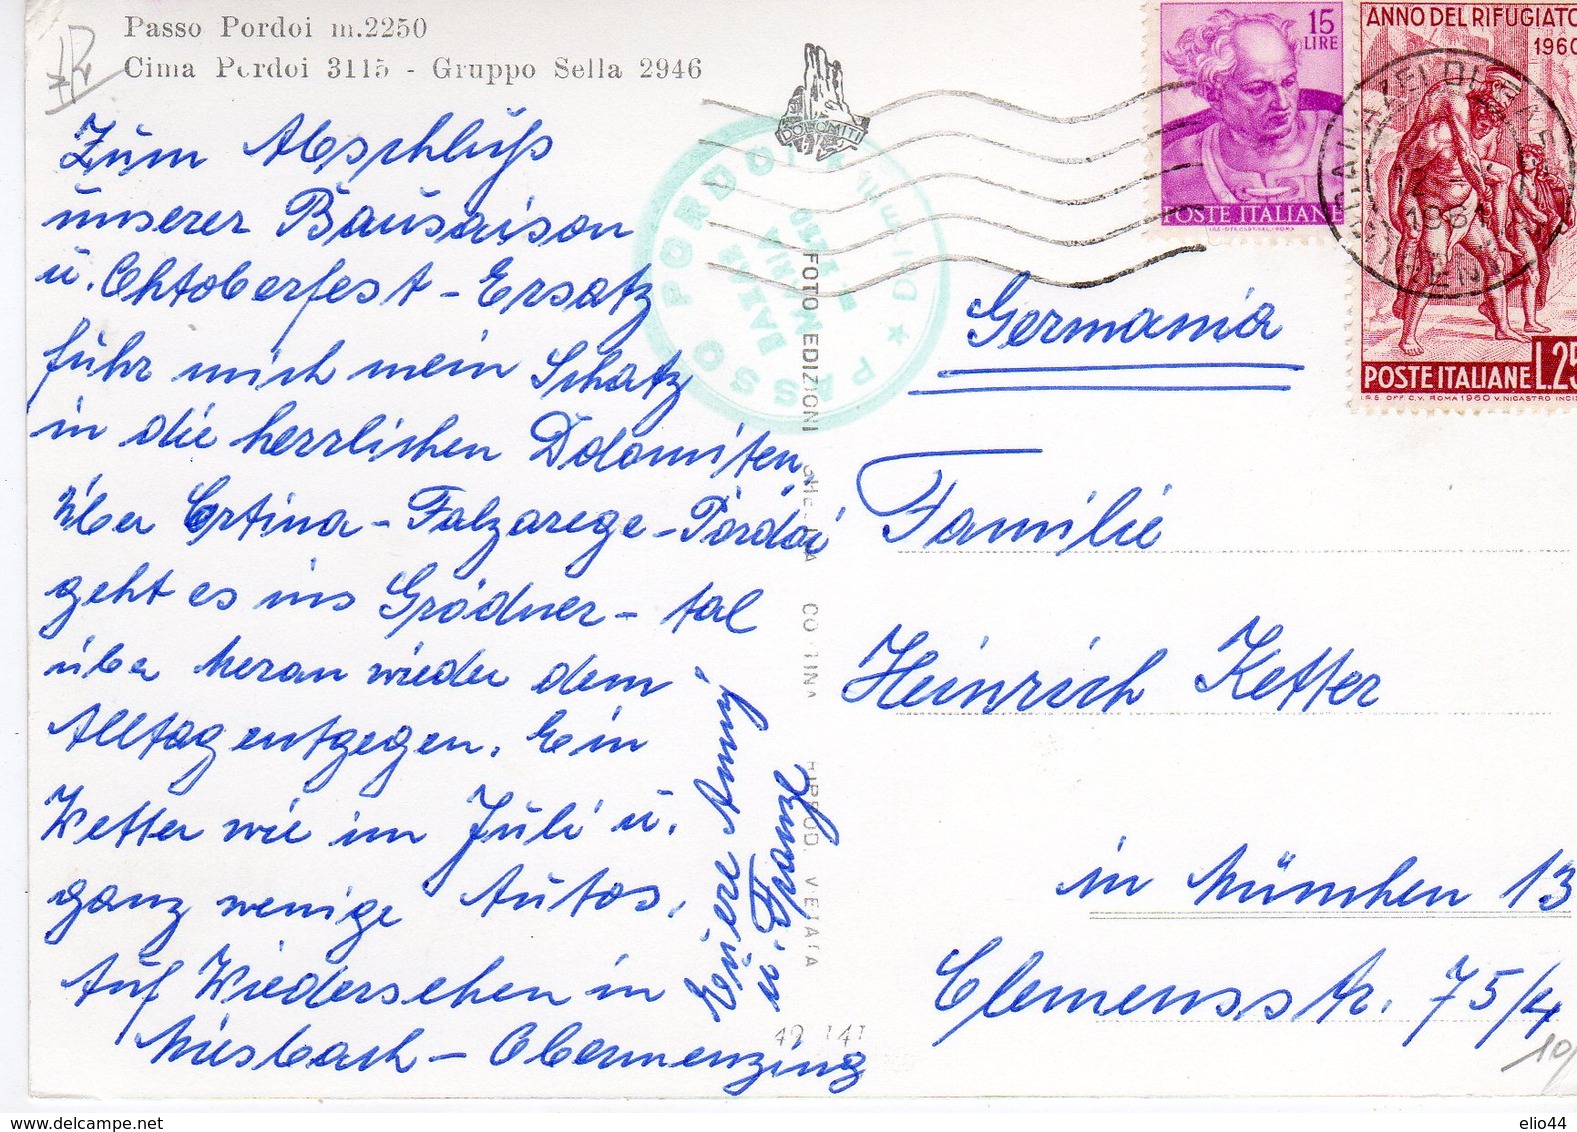 Passo Pordoi m.2250
Cima Pordoi 3115 - Gruppo Sella 2946
Zum Abschluß
unserer Bausaison
u. Oktoberfest-Ersatz
fuhr mich mein Schatz
in die herrlichen Dolomiten,
über Cortina-Falzarege-Pordoi
geht es ins Grödner-tal
über Meran wieder dem
Alltag entgegen. Ein
Wetter wie im Juli u.
ganz wenige Autos.
Auf Wiedersehen in
Miesbach - Obermenzing
Eure Anny
u. Franze
DOLOMITI
PASSO PORDOI
FOTO EDIZIONI GHEDINA CORTINA RIPROD. VIETATA
15
LIRE
POSTE ITALIANE
ANNO DEL RIFUGIATO
1960
POSTE ITALIANE L.25
1961
Germania
Familie
Heinrich Ketter
in München 13
Clemensstr. 75/4
www.delcampe.net
elio44